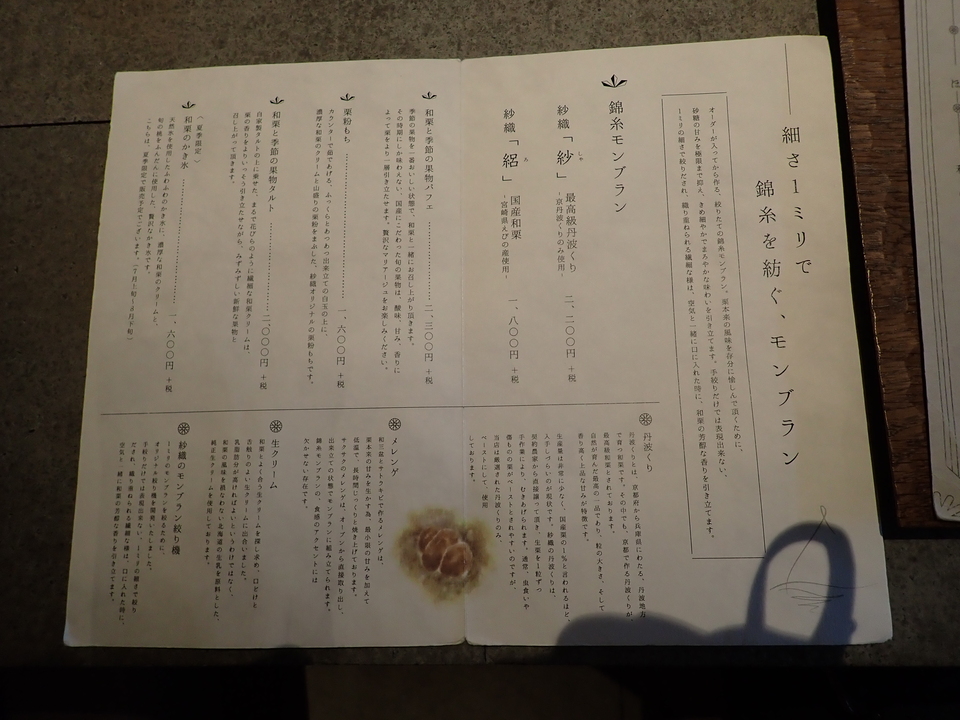 細さ1ミリで
錦糸を紡ぐ、モンブラン
オーダーが入ってから作る、絞りたての錦糸モンブラン。栗本来の風味を存分に愉しんで頂くために、
砂糖の甘みを極限まで抑え、きめ細やかでまろやかな味わいを引き立てます。手絞りだけでは表現出来ない、
1ミリの細さで絞りだされ、織り重ねられる繊細な様は、空気と一緒に口に入れた時に、和栗の芳醇な香りを引き立てます。
錦糸モンブラン
紗織「紗」
しゃ
最高級丹波くり
-京丹波くりのみ使用-
二、二〇〇円 +税
紗織「絽」
ろ
国産和栗
-宮崎県えびの産使用-
一、八〇〇円 +税
和栗と季節の果物パフェ
二、三〇〇円 +税
季節の果物を一番おいしい状態で、和栗と一緒にお召し上がり頂きます。
その時期にしか味わえない、国産にこだわった旬の果物は、酸味、甘み、香りに
よって栗をより一層引き立たせます。贅沢なマリアージュをお楽しみください。
栗粉もち
一、六〇〇円 +税
カウンターで茹であげる、ふっくらとあつあつ出来立ての白玉の上に、
濃厚な和栗のクリームと山盛りの栗粉をまぶした、紗織オリジナルの栗粉もちです。
和栗と季節の果物タルト
二、〇〇〇円 +税
自家製タルトの上に乗せた、まるで花びらのように繊細な和栗クリームは、
栗の香りをよりいっそう引き立たせながら、みずみずしい新鮮な果物と
召し上がって頂きます。
〈夏季限定〉
和栗のかき氷
一、六〇〇円 +税
天然氷を使用したふわふわのかき氷に、濃厚な和栗のクリームと、
旬の桃をふんだんに使用した、贅沢なかき氷です。
こちらは、夏季限定で販売予定でございます。(7月上旬～9月下旬)
丹波くり
丹波くりとは、京都府から兵庫県にわたる、丹波地方
で育つ和栗です。その中でも、京都で作る丹波くりが
最高級和栗とされております。
自然が育んだ最高の一品であり、粒の大きさ、そして
香り高く上品な甘みが特徴です。
生産量は非常に少なく、国産栗の1%と言われるほど、
入手しづらいのが現状です。紗織の丹波くりは、
契約農家から直接譲って頂き、生栗を1粒ずつ
手作業により、むきあげられます。通常、虫食いや
傷ものの栗がペーストとされやすいのですが、
当店は厳選された丹波くりのみ、
ペーストにして、使用
しております。
メレンゲ
和三盆とサトウキビで作るメレンゲは、
栗本来の甘みを生かす為、最小限の甘みを加えて
低温で、長時間じっくりと焼き上げております。
サクサクのメレンゲは、オーブンから直接取り出し、
出来立ての状態でモンブランに組み立てられます。
錦糸モンブランの、食感のアクセントには
欠かせない存在です。
生クリーム
和栗とよく合う生クリームを探し求め、口どけと
舌触りのよい生クリームに出合いました。
乳脂肪分が高ければよいというわけではなく、
和栗の風味を損わない北海道の生乳を原料とした、
純正生クリームを使用しております。
紗織のモンブラン絞り機
1ミリのモンブランを絞るために、
オリジナル絞り機を開発いたしました。
手絞りだけでは表現出来ない、1ミリの細さで絞り
だされ、織り重ねられる繊細な様は、口に入れた時に、
空気と一緒に和栗の芳醇な香りを引き立てます。